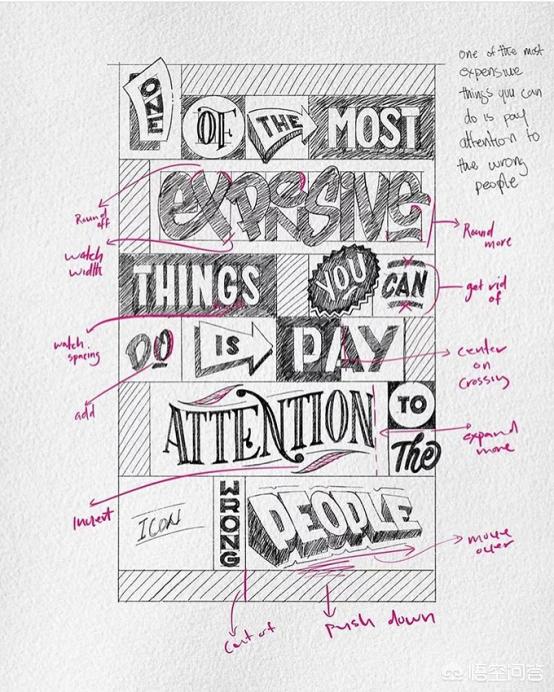 one of the most
expensive
things you can
do is pay
attention to
the wrong
people
ONE OF THE MOST
EXPENSIVE
THINGS YOU CAN
DO IS PAY
ATTENTION TO
The
ICON WRONG PEOPLE
Round
off
watch
width
watch
spacing
add
Invert
Round
more
get rid
of
center
on
crossing
expand
more
move
over
Push down
悟空问答